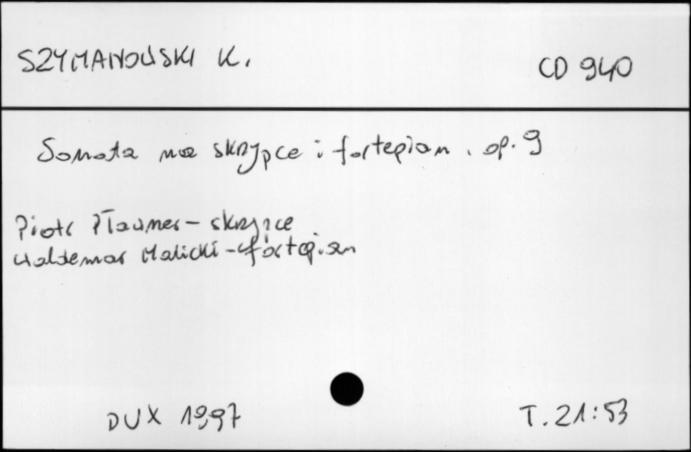 SZYMANOWSKI K.
CD 940
Sonata na skrzypce i fortepian. op. 9
Piotr Pławner - skrzypce
Waldemar Malicki - fortepian
DUX 1997
T. 21:53